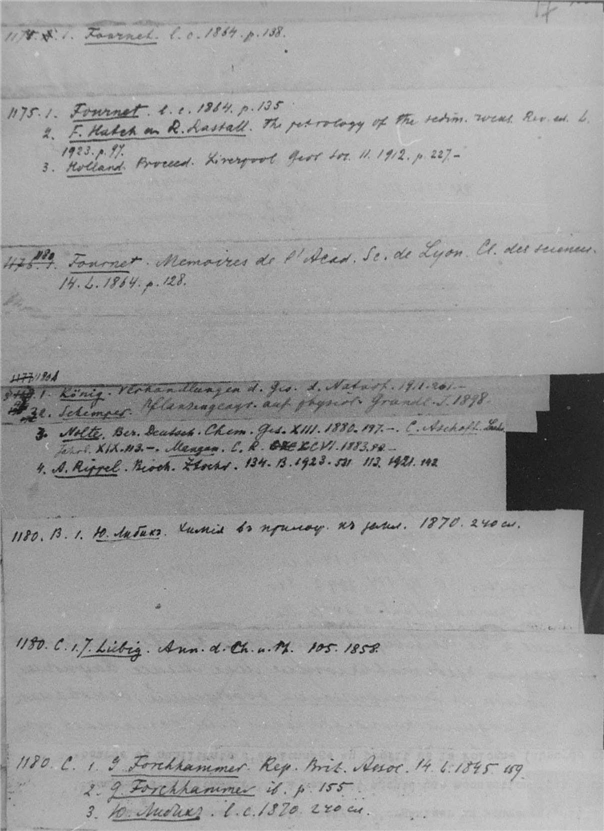 17
1. Fournet. l. c. 1864. p. 138.
1175. 1. Fournet. l. c. 1864. p. 135
2. F. Hatch R. Rastall. The petrology of the sedim. Rev. ed. L.
1923. p. 97.
3. Holland. Proceed. Liverpool Geol. Soc. 11. 1912. p. 227.–
1180
1. Fournet. Memoires de l'Acad. Sc. de Lyon. Cl. des sciences.
14. L. 1864. p. 128.
1. König. Verhandlungen d. Ges. d. Naturf.
2. Schimper. auf physiol. Grundl. J. 1898.
3. Nolte. Ber. Deutsch. Chem. Ges. XIII. 1880. 197.– C. Aschoff.
XIX. 113.–. Mangan. C. R. XCVI. 1883.
4. A. Rippel. Bioch. Ztschr. 134. B. 1923. 113. 1921. 142
1180. B. 1. Ю. Либихъ. Химія въ прилож. къ земл. 1870. 240 сл.
1180. C. 1. J. Liebig. Ann. d. Ch. u. Ph. 105. 1858.
1180. C. 1. G Forchhammer. Rep. Brit. Assoc. 14. L. 1845. 159.
2. G Forchhammer ib. p. 155.
3. Ю. Либихъ. l. c. 1870. 240 сл.